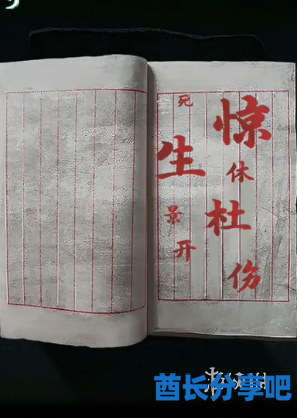 惊休杜伤
死生景开
酋长分享吧